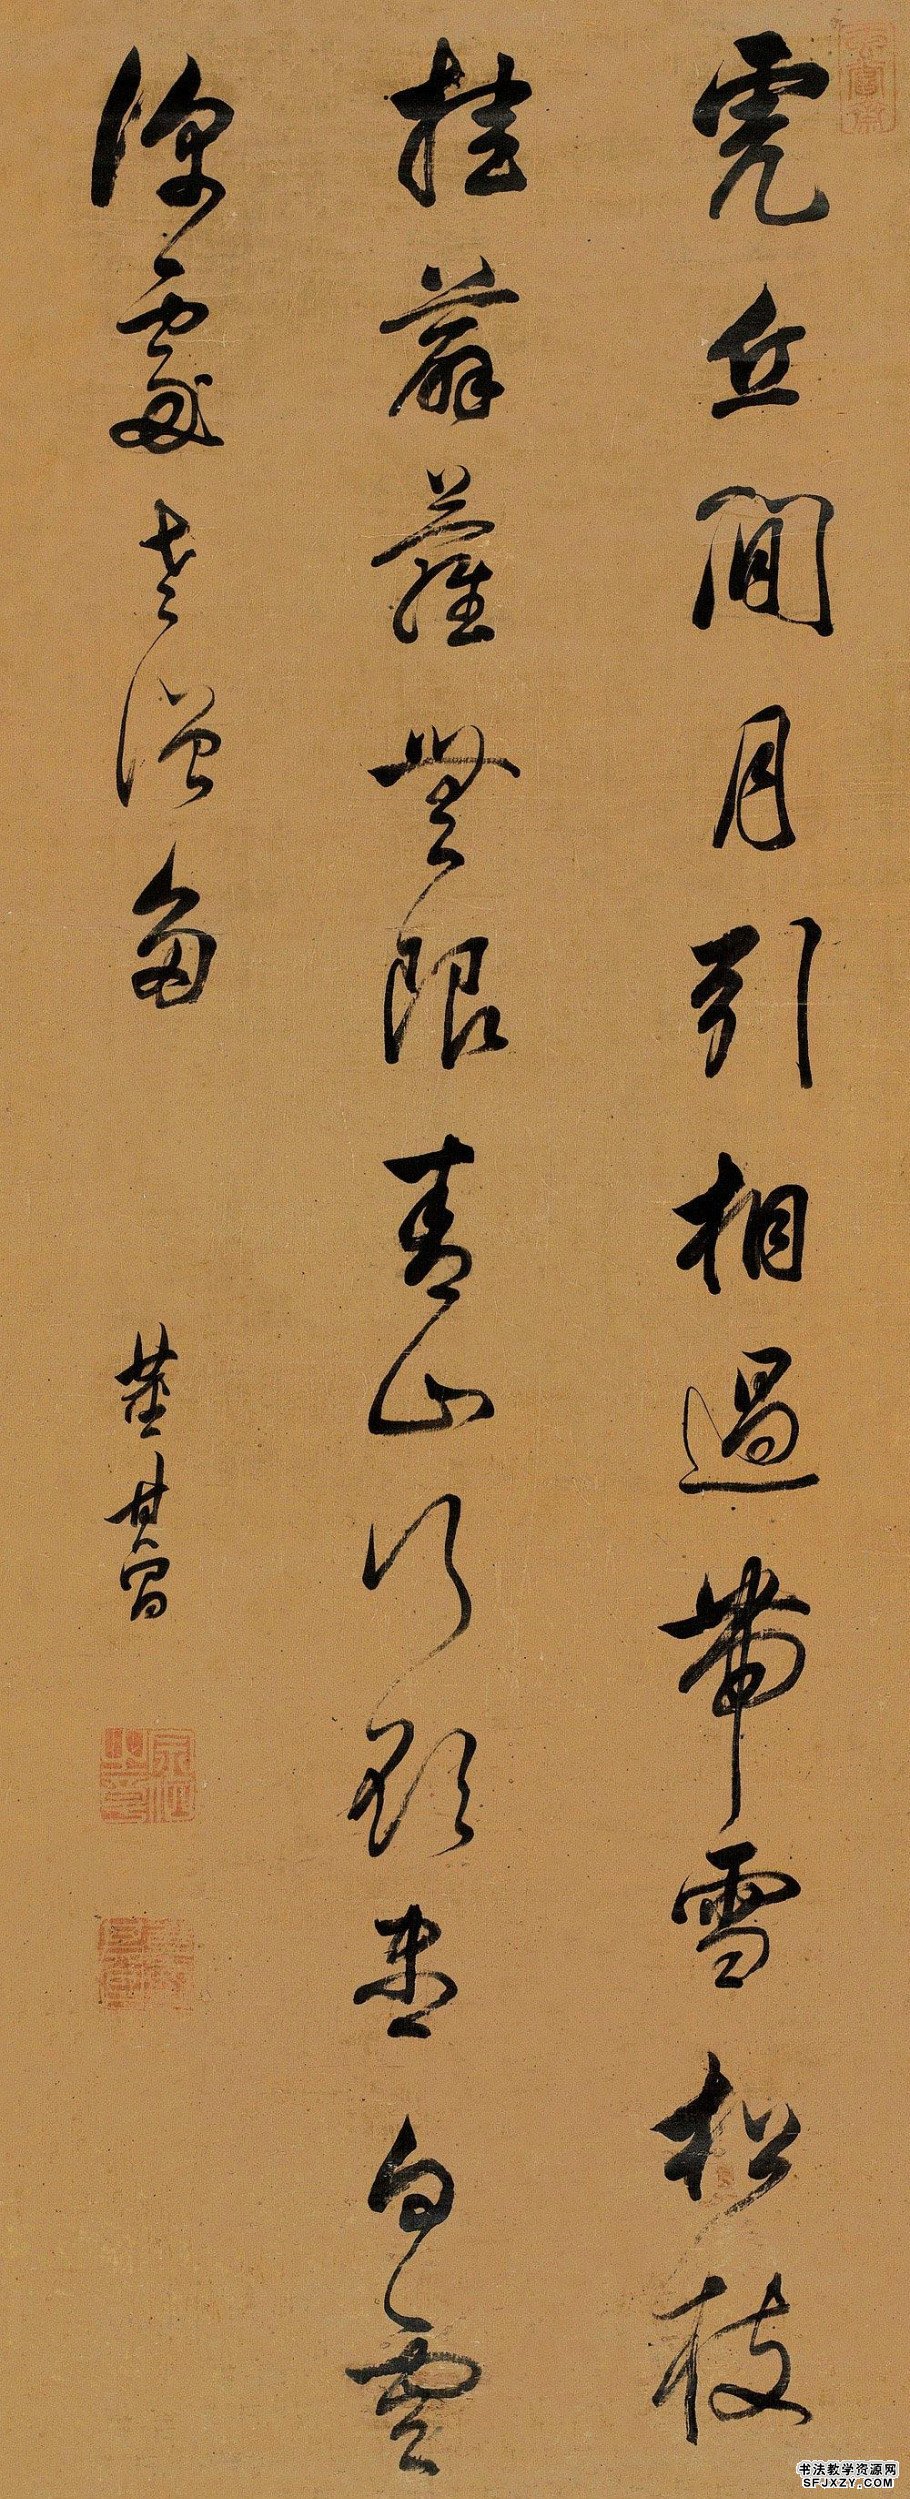 虎丘閒月引相過帶雪松枝
挂薜蘿無限青山行欲盡白雲
深處老僧多
董其昌
书法教学资源网
SFJXZY.COM